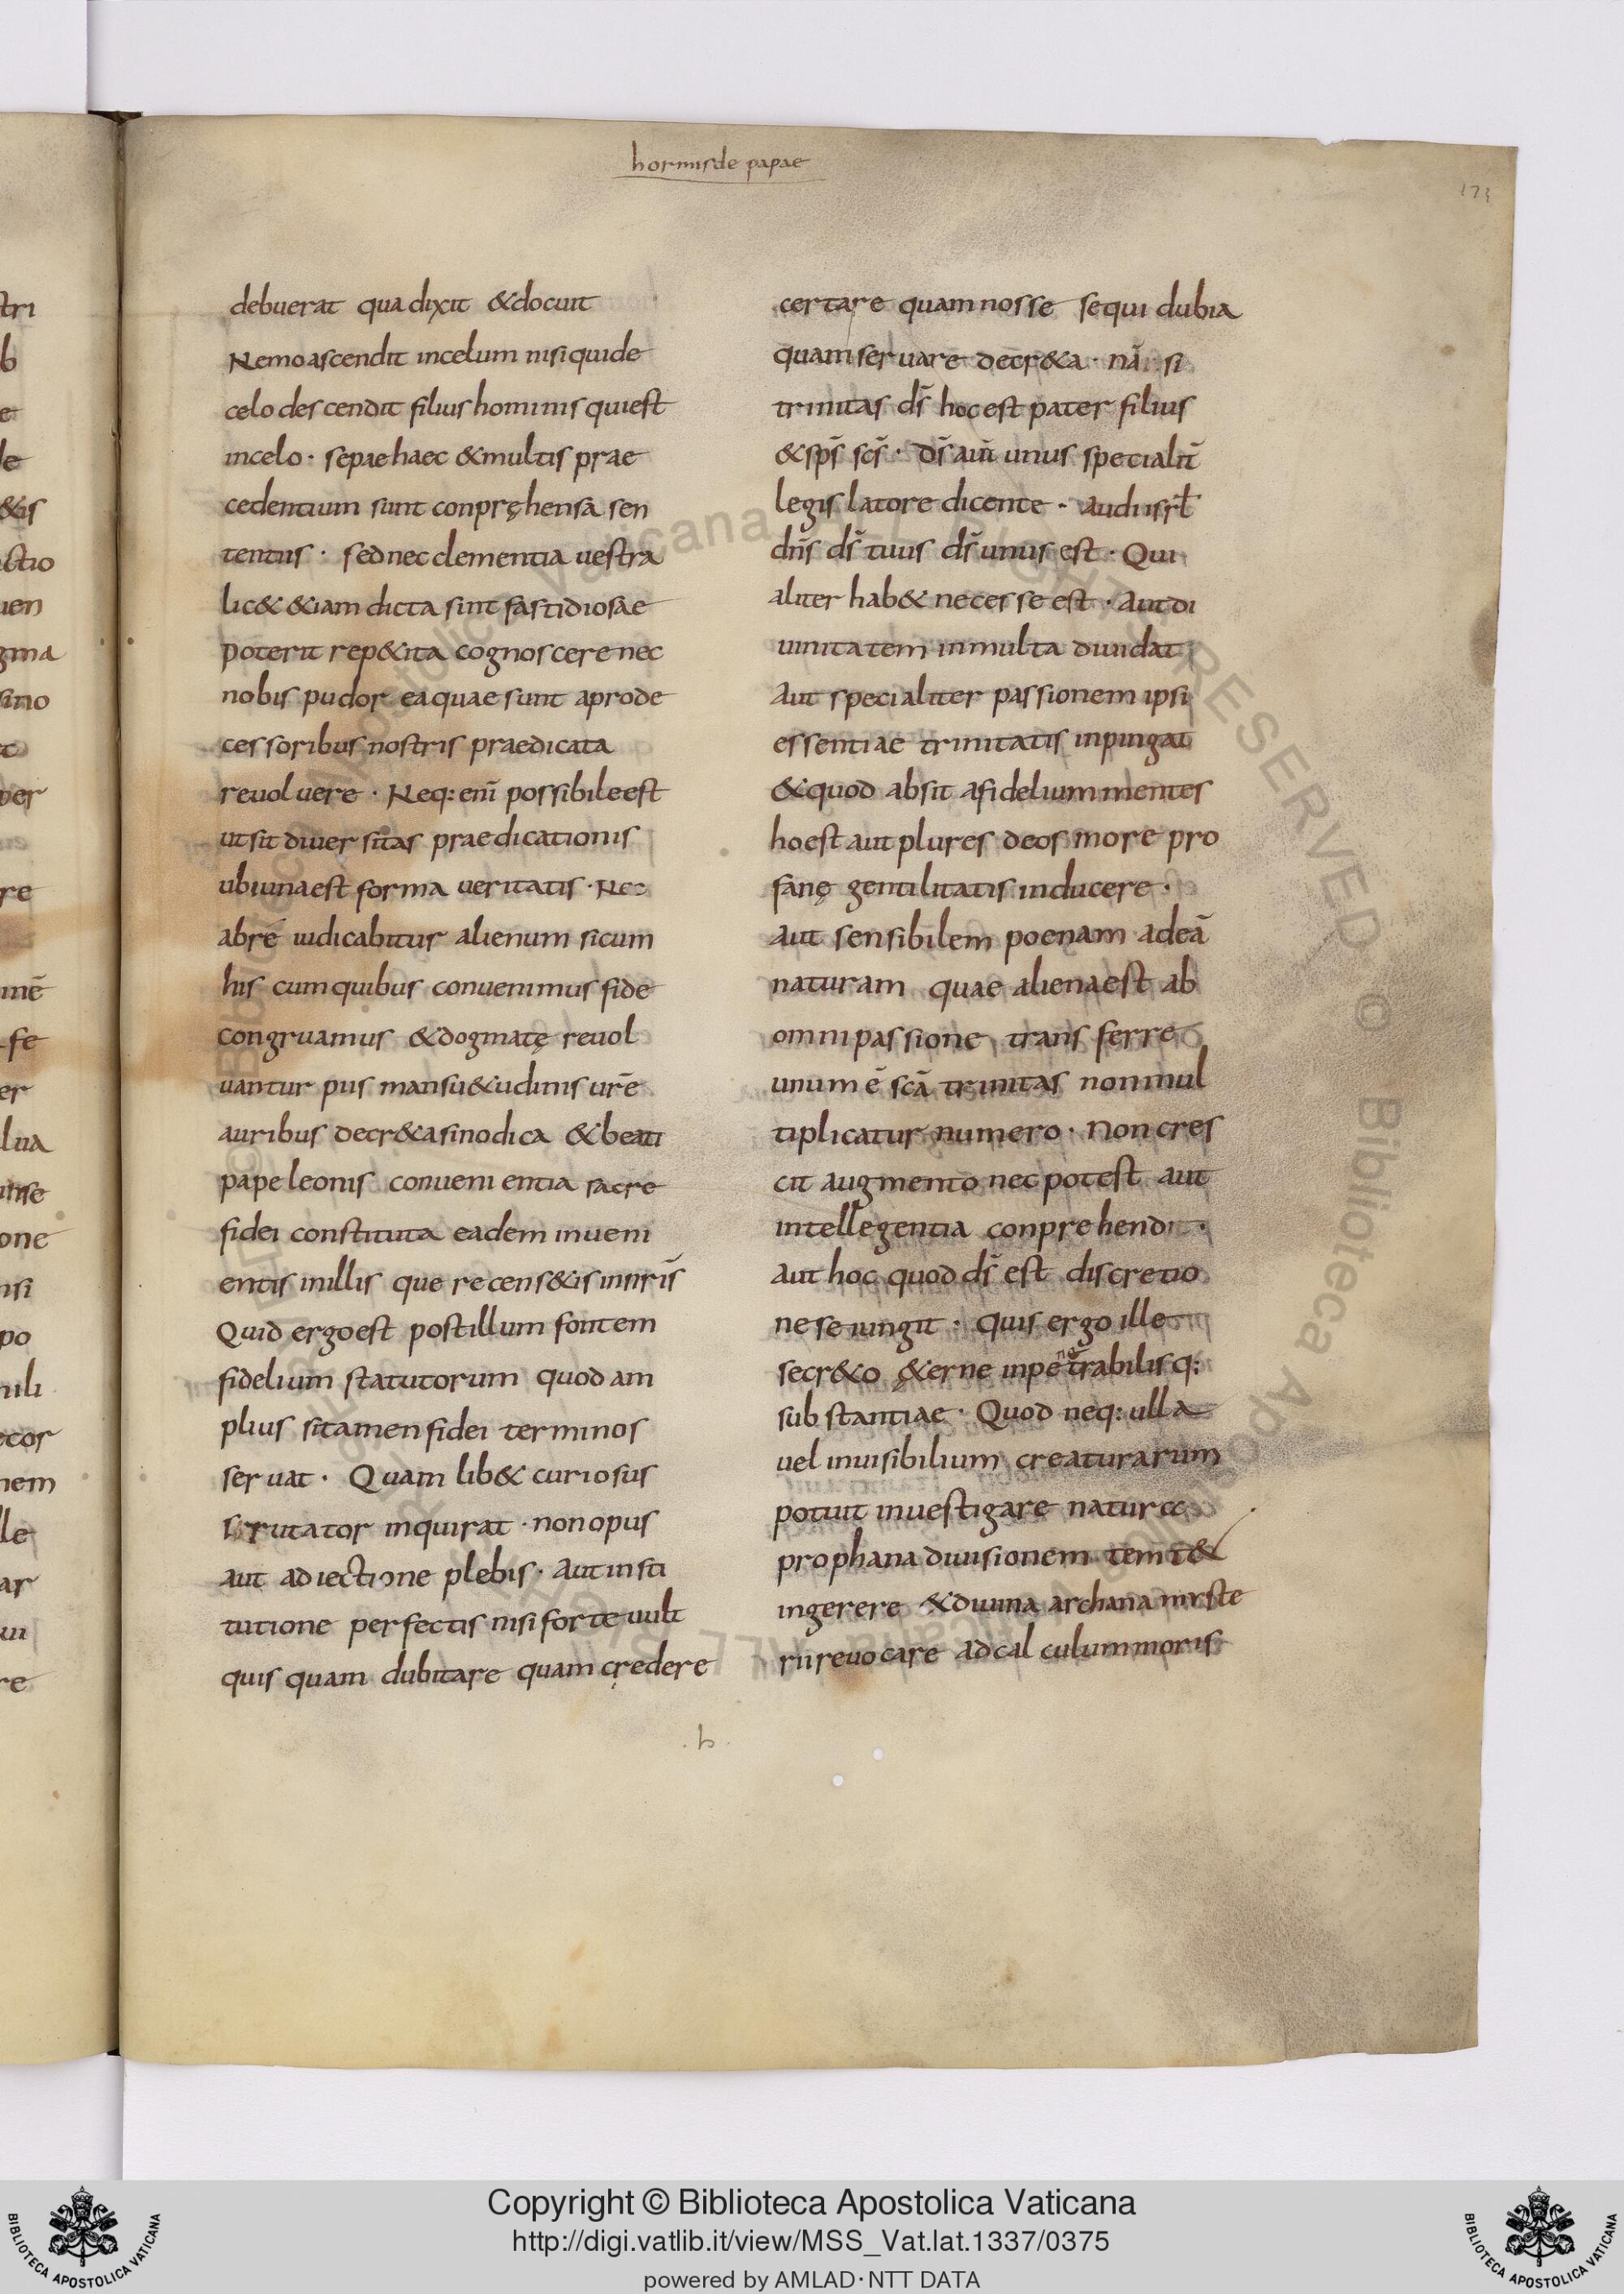 hormisde papae
173
debuerat qua dixit & docuit
Nemo ascendit in celum nisi qui de
celo descendit filius hominis qui est
in celo · sepae haec & multis prae
cedentium sunt conpręhensa sen
tentiis · sed nec clementia uestra
lic& &iam dicta sint fastidiosae
poterit rep&ita cognoscere nec
nobis pudor ea quae sunt a prode
cessoribus nostris praedicata
reuoluere · Neq: enī possibile est
ut sit diuersitas praedicationis
ubi una est forma ueritatis · Nec
ab re iudicabitur alienum si cum
his cum quibus conuenimus fide
congruamus & dogmatę reuol
uantur piis mansu&udinis urē
auribus decr&a sinodica & beati
pape leonis conuenientia sacre
fidei constituta eadem inueni
entis in illis que recens&is in nr̄is
Quid ergo est post illum fontem
fidelium statutorum quod am
plius si tamen fidei terminos
seruat · Quam lib& curiosus
scrutator inquirat · non opus
aut adiectione plebis · Aut insti
tutione perfectis nisi forte uult
quisquam dubitare quam credere
certare quam nosse sequi dubia
quam seruare decr&a · nā si
trinitas ds̄ hoc est pater filius
& sps̄ scs̄ · ds̄ aut̄ unus specialit̄
legislatore dicente · audi isrł
dn̄s ds̄ tuus ds̄ unus est · Qui
aliter hab& necesse est · Aut di
uinitatem in multa diuidat
Aut specialiter passionem ipsi
essentiae trinitatis inpingat
& quod absit a fidelium mentes
ho est aut plures deos more pro
fanę gentilitatis inducere ·
aut sensibilem poenam ad eā
naturam quae aliena est ab
omni passione transferre
unum ē scā trinitas non mul
tiplicatur numero · Non cres
cit augmento nec potest aut
intellegentia conprehendi ·
Aut hoc quod ds̄ est discretio
ne seiungit · quis ergo ille
secr&o &erne inpenetrabilisq:
substantiae · Quod neq: ulla
uel inuisibilium creaturarum
potuit inuestigare natura
prophana diuisionem temt&
ingerere & diuina archana miste
rii reuocare ad calculum moris
· h ·
Copyright © Biblioteca Apostolica Vaticana
http://digi.vatlib.it/view/MSS_Vat.lat.1337/0375
powered by AMLAD·NTT DATA